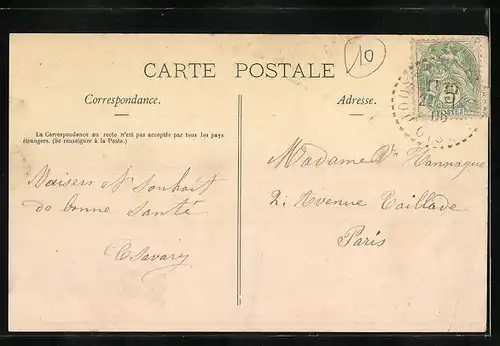 10
CARTE POSTALE
Correspondance.
Adresse.
La Correspondance au recto n'est pas acceptée par tous les pays
étrangers. (Se renseigner à la Poste.)
Madame Vve Hannaque
2, Avenue Taillade
Paris
Baisers et Souhait
de bonne santé
CSavary